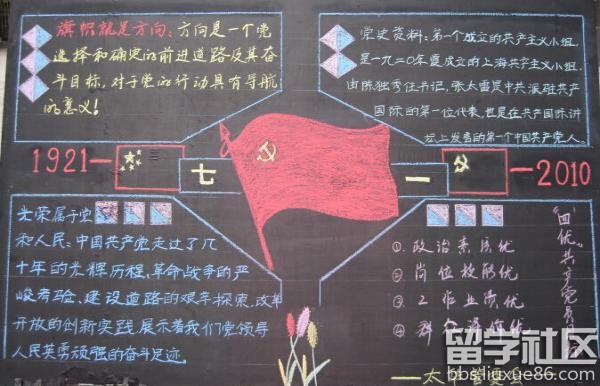 旗帜就是方向：方向是一个党
选择和确定的前进道路及其奋
斗目标，对于党的行动具有导航
的意义！
党史资料：第一个成立的共产主义小组，
是一九二〇年夏成立的上海共产主义小组，
由陈独秀任书记，张太雷是中共派驻共产
国际的第一位代表，也是在共产国际讲
坛上发言的第一个中国共产党人。
1921
七
一
2010
光荣属于党
和人民：中国共产党走过了几
十年的光辉历程，革命战争的严
峻考验、建设道路的艰辛探索、改革
开放的创新实践展示着我们党领导
人民英勇顽强的奋斗足迹。
"四优"共产党员
①、政治素质优
②、岗位技能优
③、工作业绩优
④、群众
留学社区
bbs.liuxue86.com